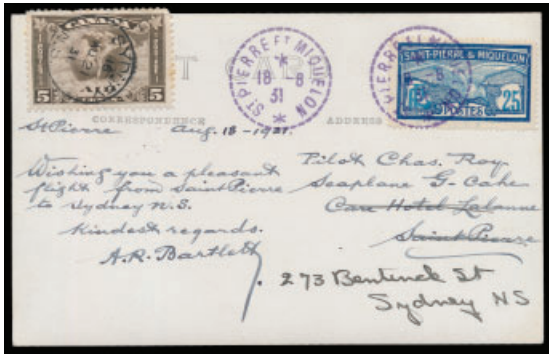 CANADA
5 5
ST PIERRE ET MIQUELON
18 - 8
31
SAINT-PIERRE & MIQUELON
POSTES
25
CORRESPONDENCE
ADDRESS
St Pierre Aug. 18-1931.
Wishing you a pleasant
flight from Saint Pierre
to Sydney N.S.
Kindest regards.
A.R. Bartlett
Pilot Chas. Roy.
Seaplane G-Cahe
Care Hotel Lalanne
Saint Pierre
273 Bentinck St
Sydney NS